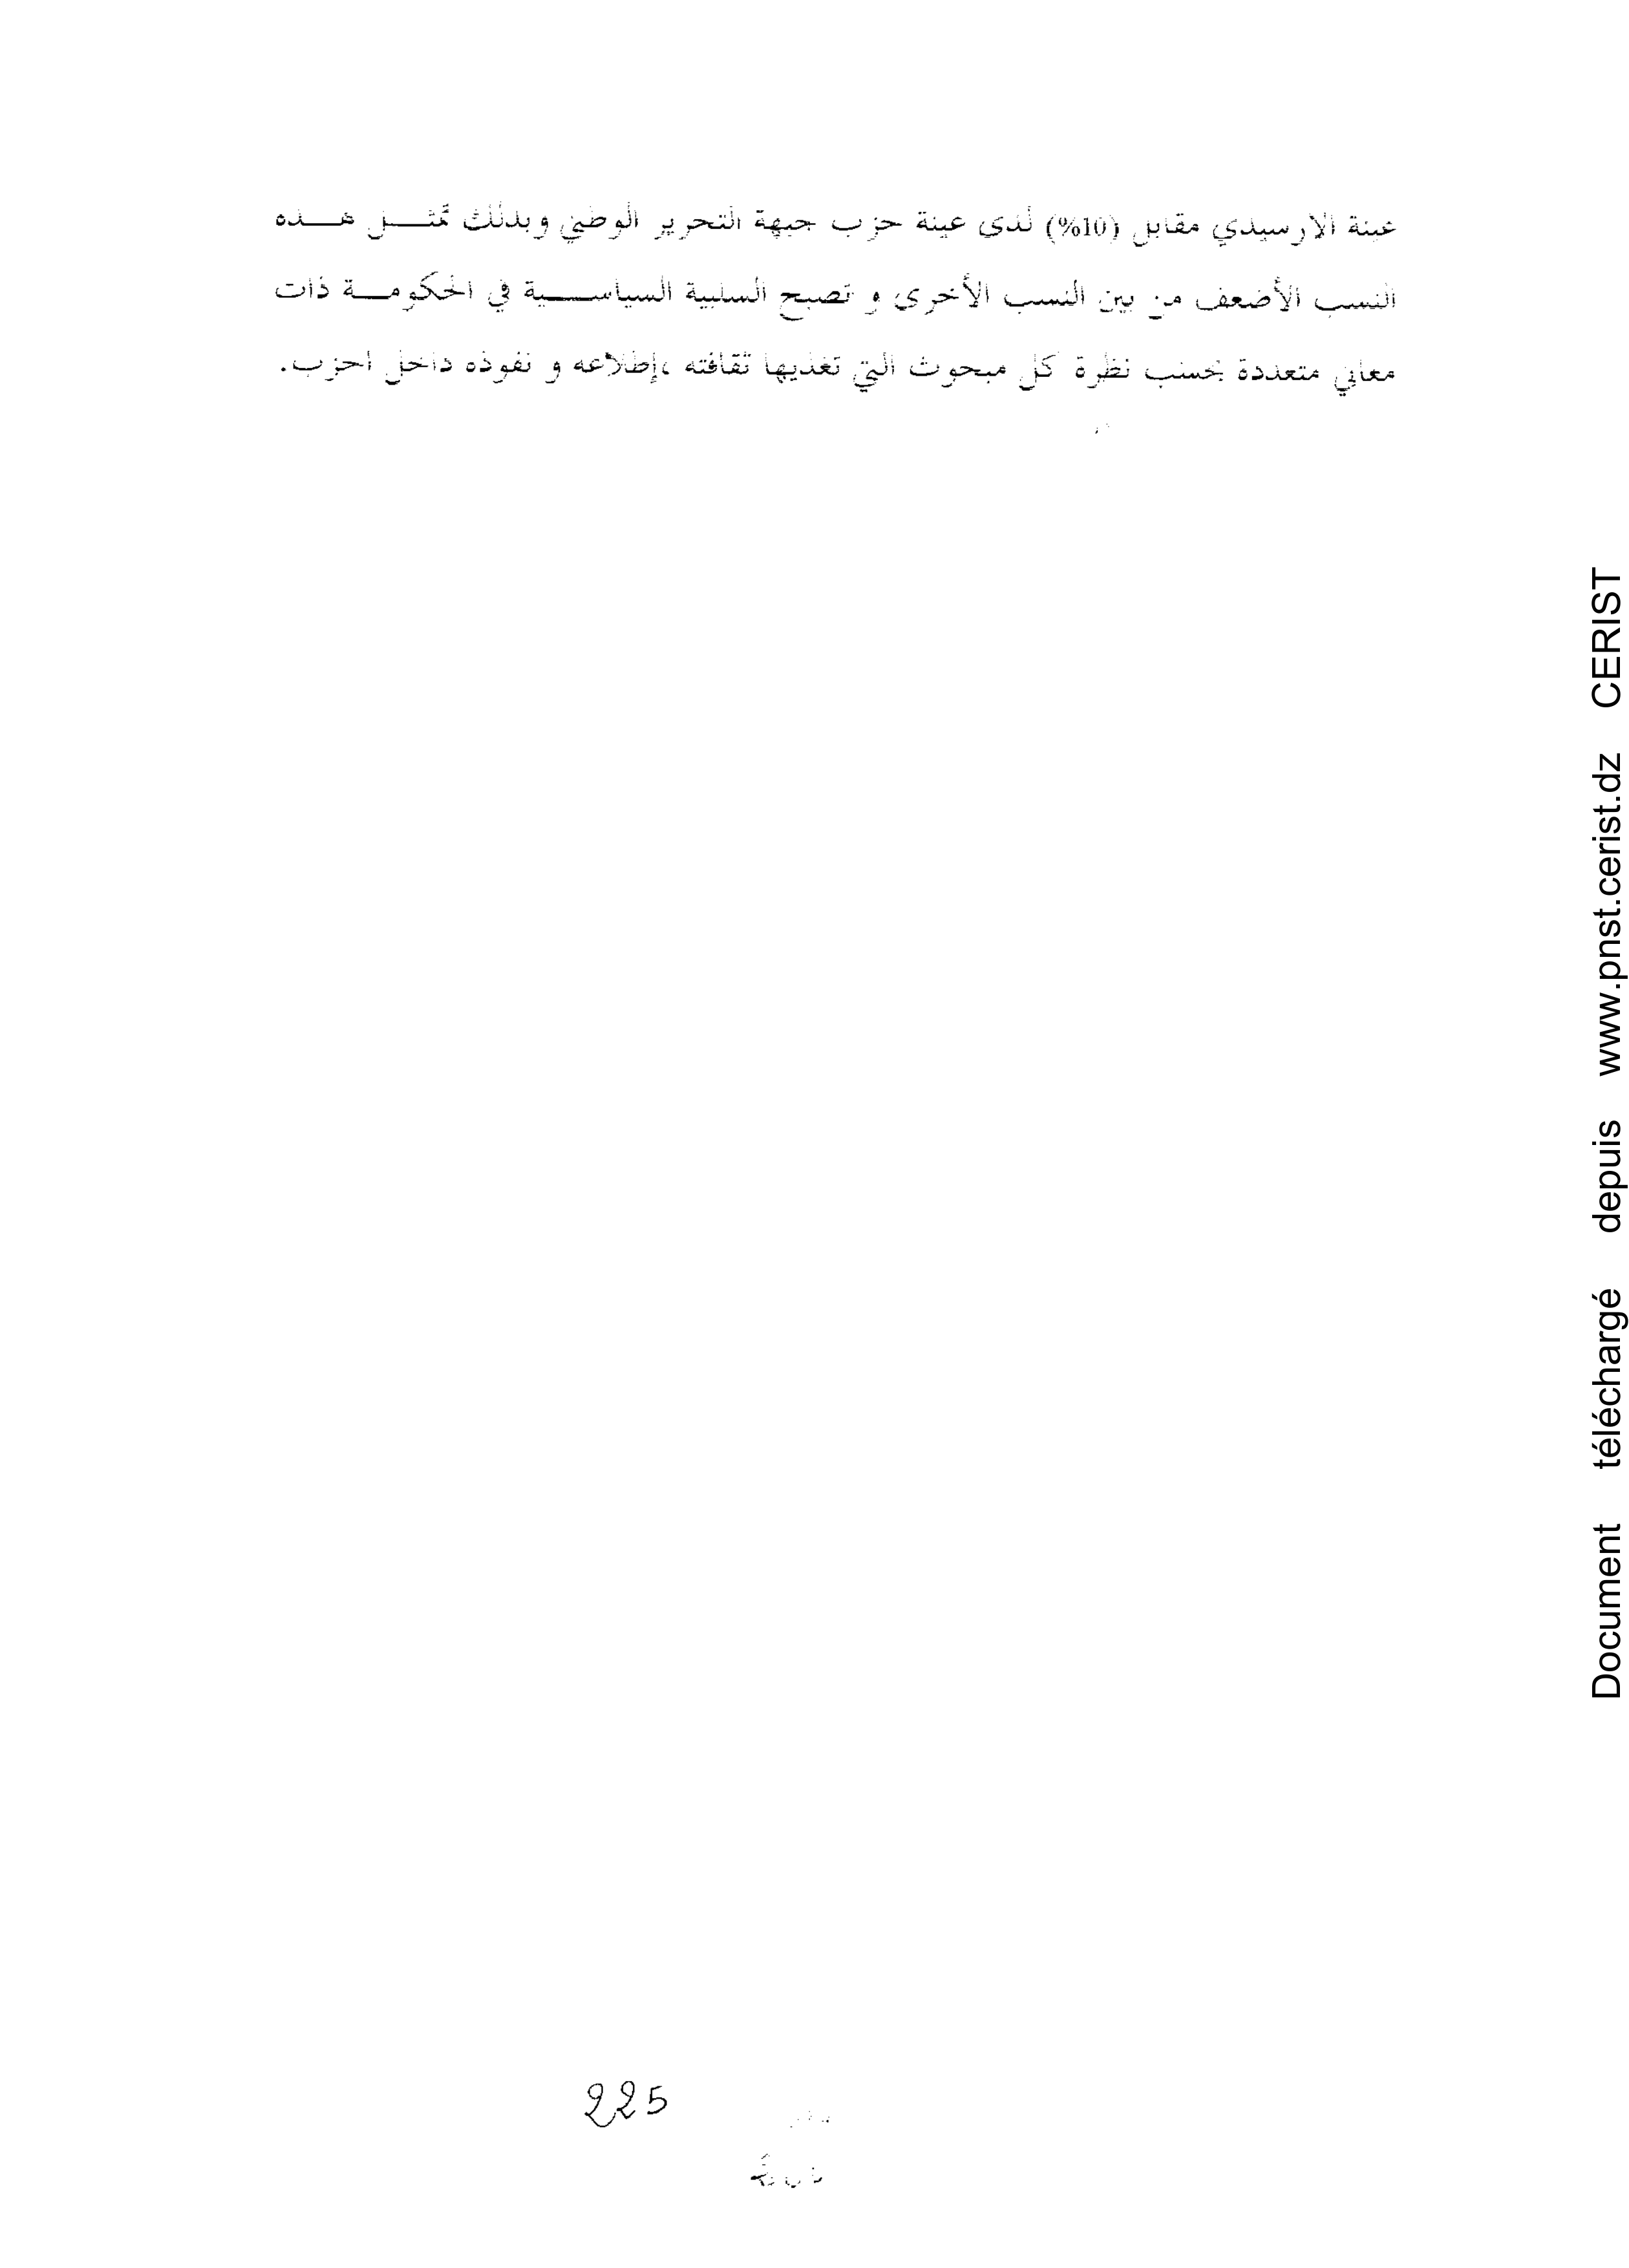 عينة الارسيدي مقابل (10%) لدى عينة حزب جبهة التحرير الوطني وبذلك تمثــل هــذه
النسب الأضعف من بين النسب الأخرى و تصبح السلبية السياســية في الحكومــة ذات
معاني متعددة بحسب نظرة كل مبحوث التي تغذيها ثقافته ،إطلاعه و نفوذه داخل الحزب.
Document téléchargé depuis www.pnst.cerist.dz CERIST
225